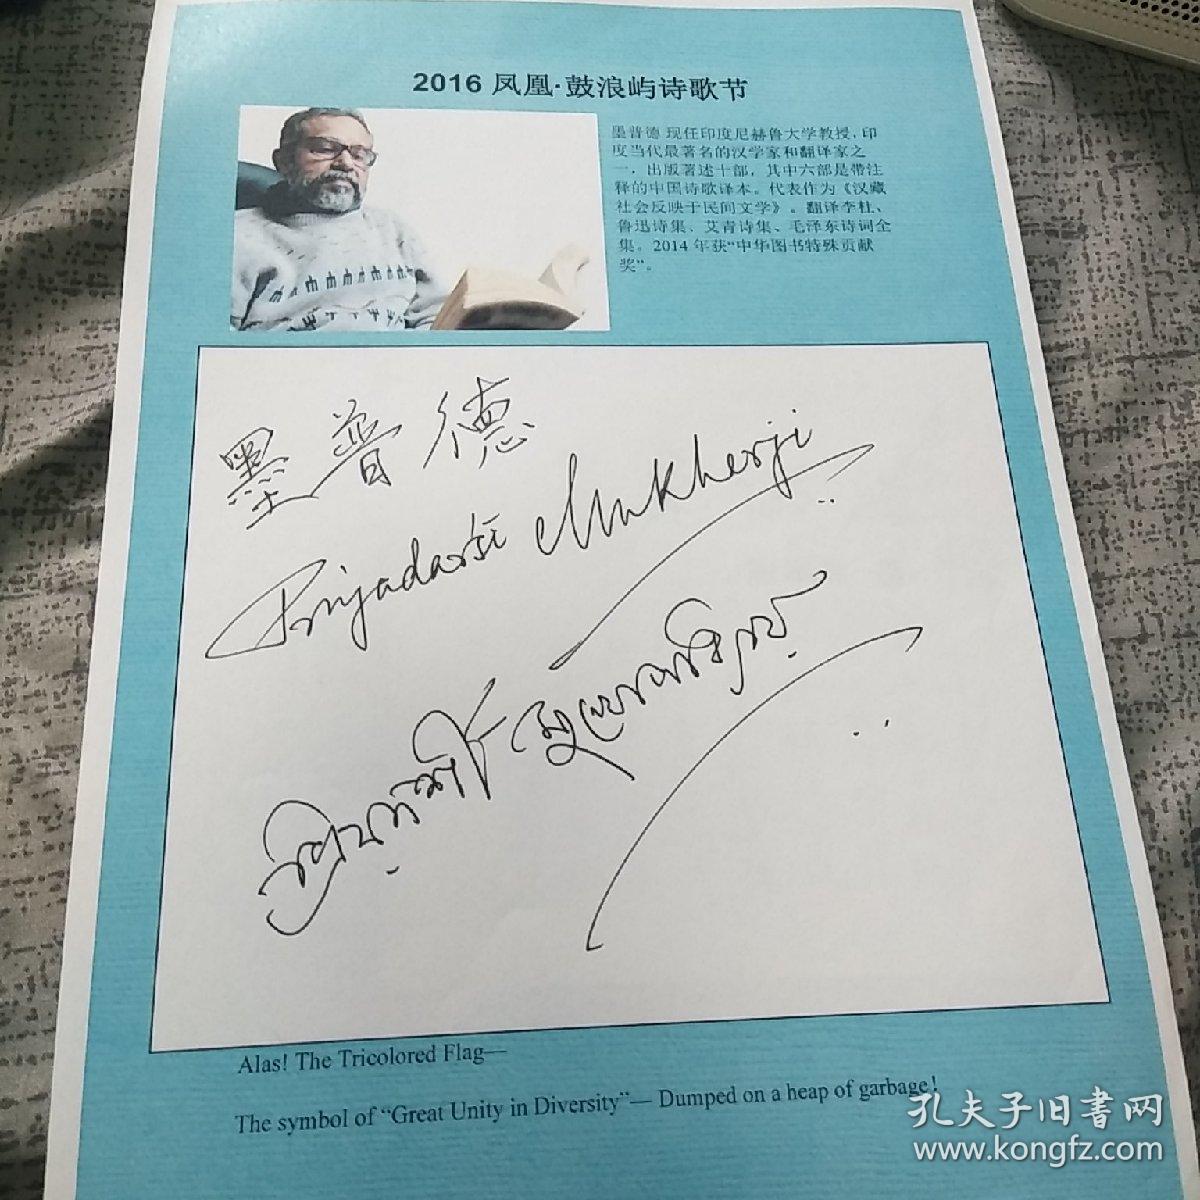 2016 凤凰·鼓浪屿诗歌节
墨普德 现任印度尼赫鲁大学教授，印
度当代最著名的汉学家和翻译家之
一，出版著述十部，其中六部是带注
释的中国诗歌译本。代表作为《汉藏
社会反映于民间文学》。翻译李杜、
鲁迅诗集、艾青诗集、毛泽东诗词全
集。2014 年获“中华图书特殊贡献
奖”。
墨普德
Priyadarśī Mukherji
প্রিয়দর্শী মুখোপাধ্যায়
Alas! The Tricolored Flag—
The symbol of “Great Unity in Diversity”— Dumped on a heap of garbage!
孔夫子旧書网
www.kongfz.com